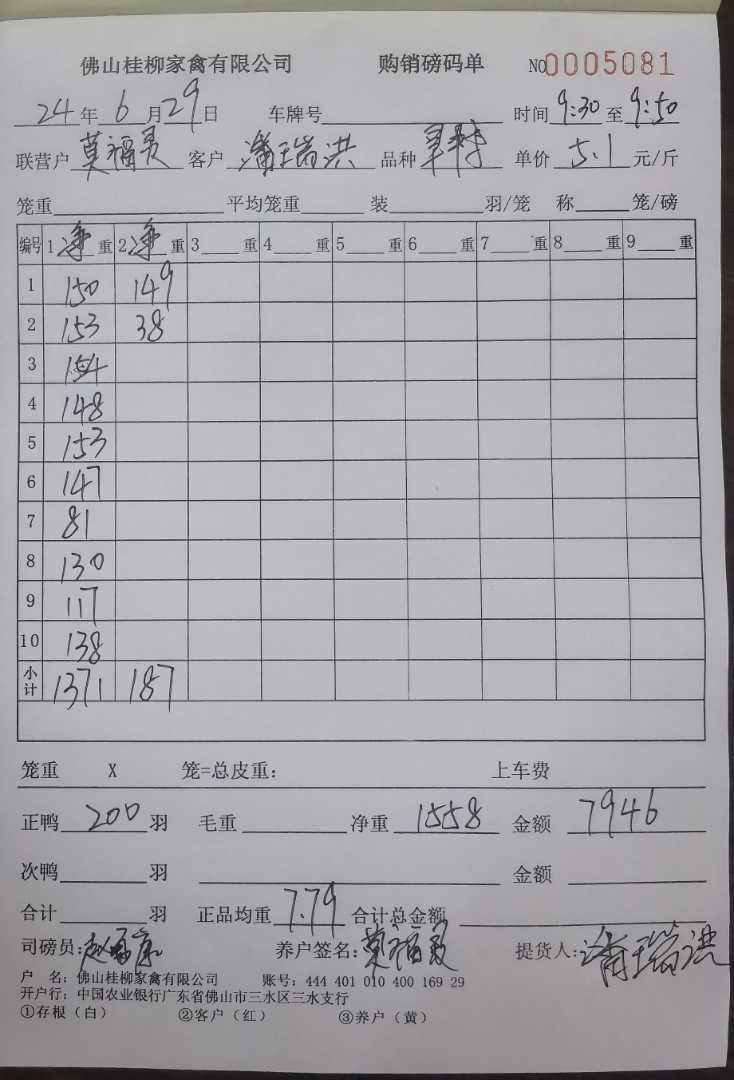 佛山桂柳家禽有限公司 购销磅码单 NO0005081
24年6月29日 车牌号 时间9:30至9:50
联营户莫福灵 客户潘瑞洪 品种 单价5.1元/斤
笼重 平均笼重 装 羽/笼 称 笼/磅
编号 1净重 2净重 3 重 4 重 5 重 6 重 7 重 8 重 9 重
1 150 149
2 153 38
3 154
4 148
5 153
6 147
7 81
8 130
9 117
10 138
小计 1371 187
笼重 X 笼=总皮重: 上车费
正鸭200羽 毛重 净重1558 金额7946
次鸭 羽 金额
合计 羽 正品均重7.79 合计总金额
司磅员: 养户签名:莫福灵 提货人:潘瑞洪
户 名: 佛山桂柳家禽有限公司 账号: 444 401 010 400 169 29
开户行: 中国农业银行广东省佛山市三水区三水支行
①存根(白) ②客户(红) ③养户(黄)